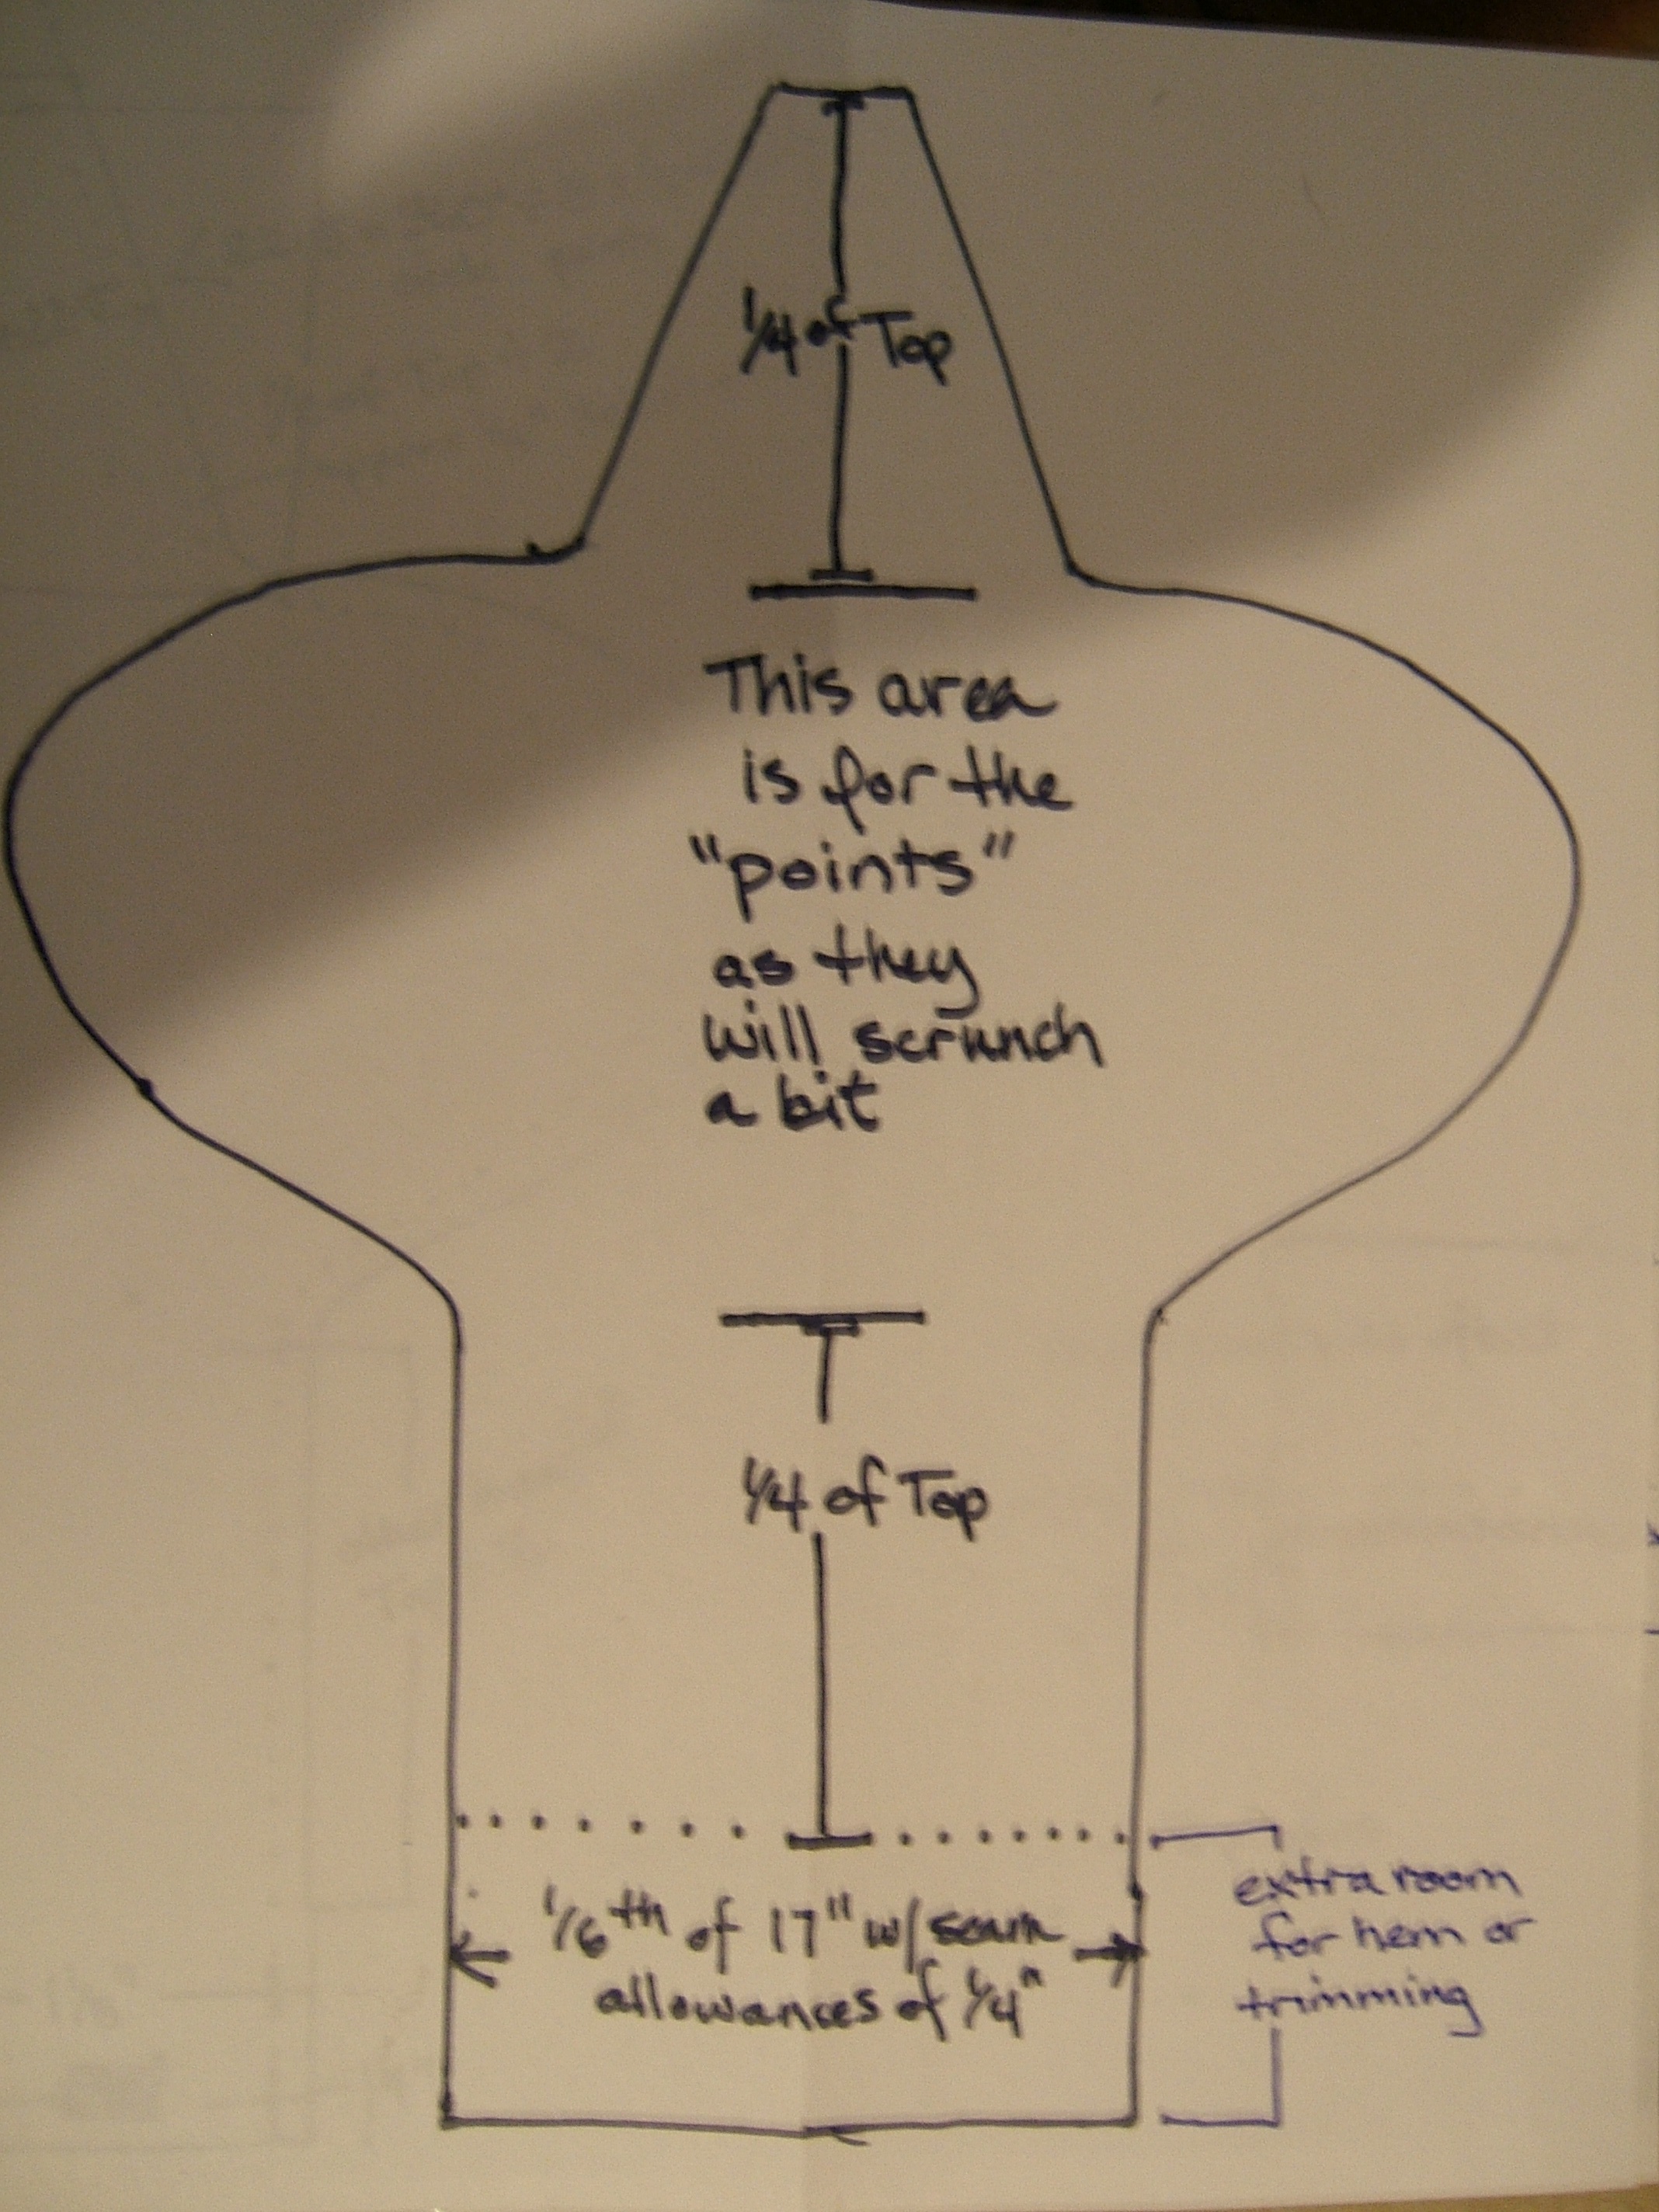 1/4 of Top
This area
is for the
"points"
as they
will scrunch
a bit
1/4 of Top
1/6th of 17" w/seam
allowances of 1/4"
extra room
for hem or
trimming